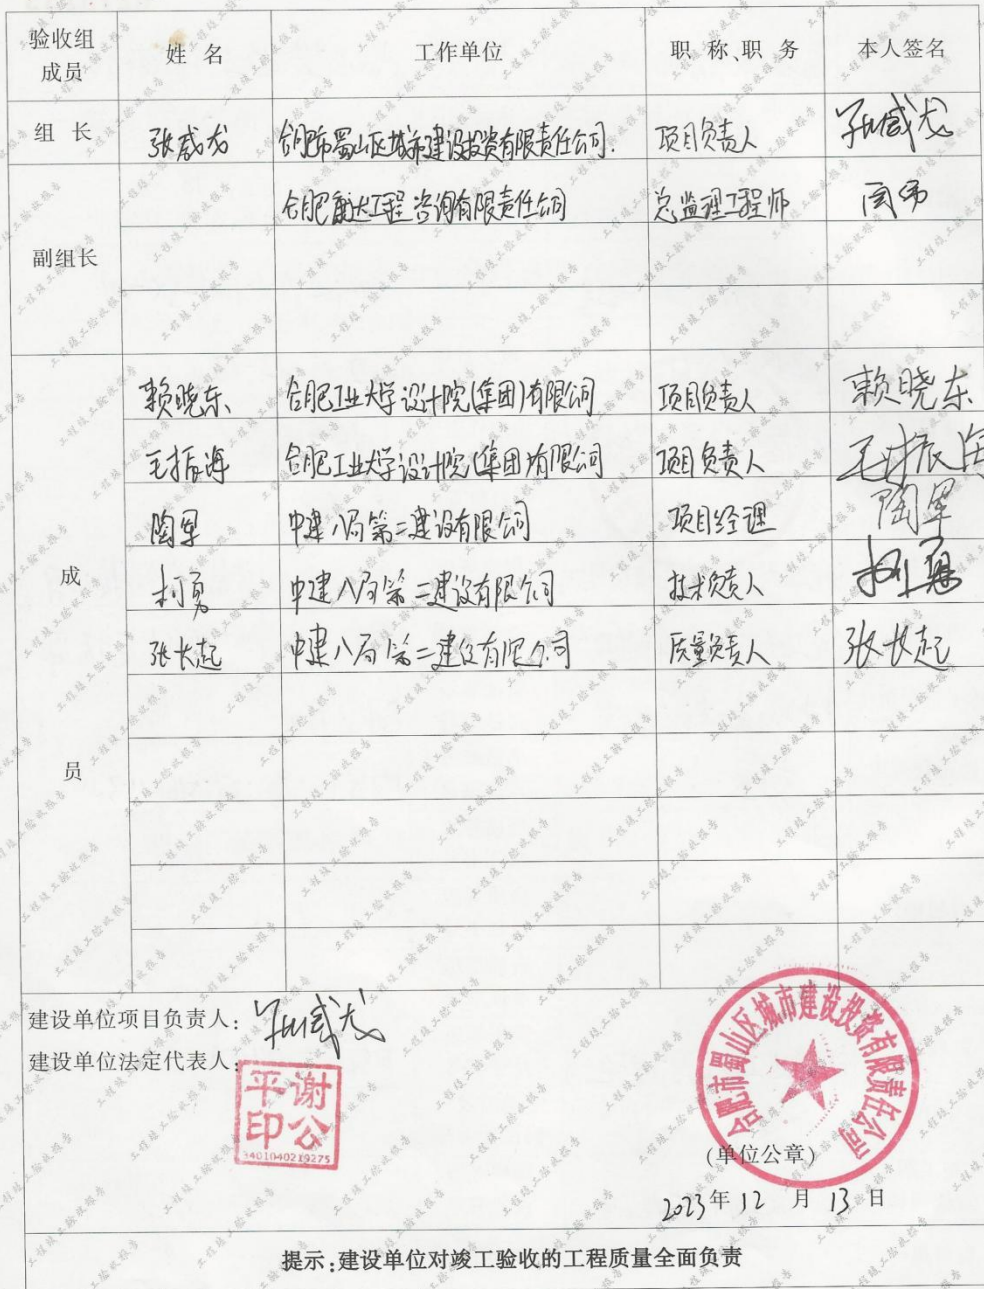 验收组成员 姓 名 工作单位 职 称、职 务 本人签名
组 长 张威龙 合肥市蜀山区城市建设投资有限责任公司. 项目负责人 张威龙
副组长 合肥工程咨询有限责任公司 总监理工程师
成员
赖晓东 合肥工业大学设计院(集团)有限公司 项目负责人 赖晓东
毛振海 合肥工业大学设计院(集团)有限公司 项目负责人 毛振海
陶军 中建八局第二建设有限公司 项目经理 陶军
柯勇 中建八局第二建设有限公司 技术负责人 柯勇
张长起 中建八局第二建设有限公司 质量负责人 张长起
建设单位项目负责人: 张威龙
建设单位法定代表人:
谢公平印
3401040219275
合肥市蜀山区城市建设投资有限责任公司
(单位公章)
2023年12月13日
提示:建设单位对竣工验收的工程质量全面负责
工程竣工验收报告